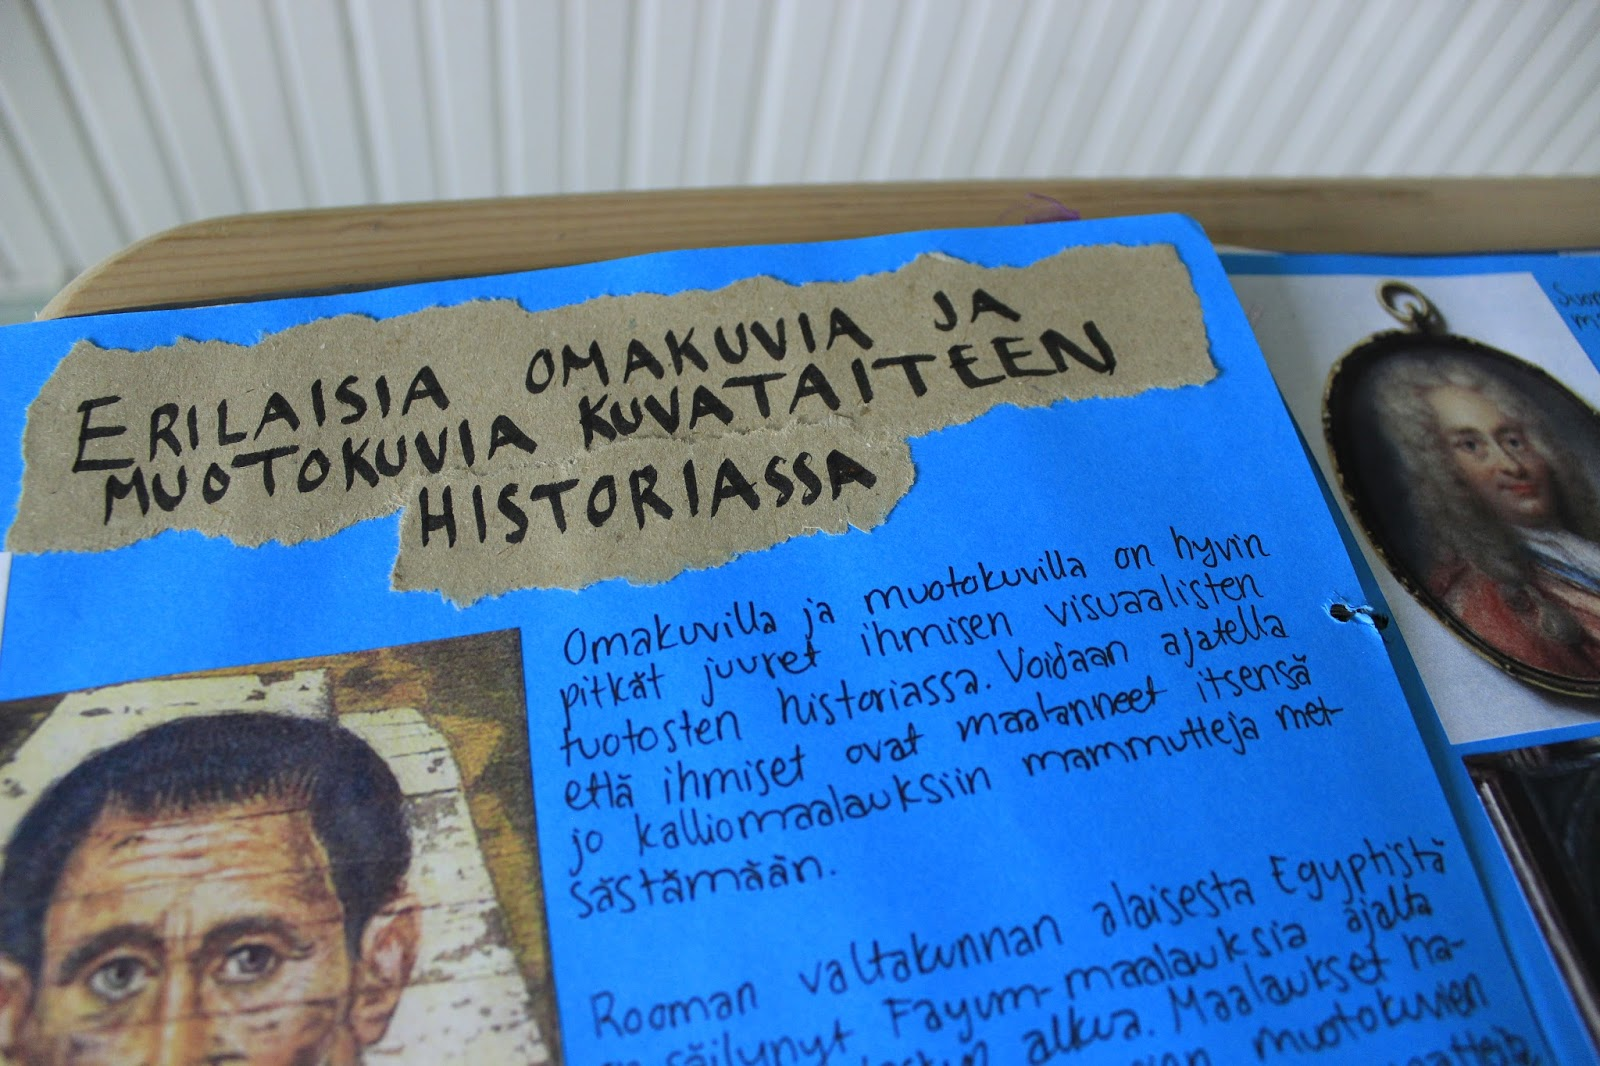 ERILAISIA OMAKUVIA JA
MUOTOKUVIA KUVATAITEEN
HISTORIASSA
Omakuvilla ja muotokuvilla on hyvin
pitkät juuret ihmisen visuaalisten
tuotosten historiassa. Voidaan ajatella
että ihmiset ovat maalanneet itsensä
jo kalliomaalauksiin mammutteja met-
sästämään.
Rooman valtakunnan alaisesta Egyptistä
säilynyt Fayum-maalauksia ajalta
alkua. Maalaukset ha-
muotokuvien